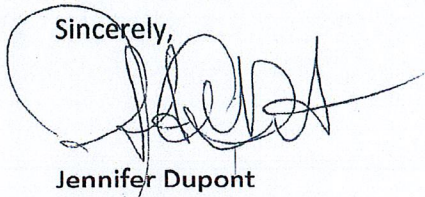 Sincerely,
Jennifer Dupont